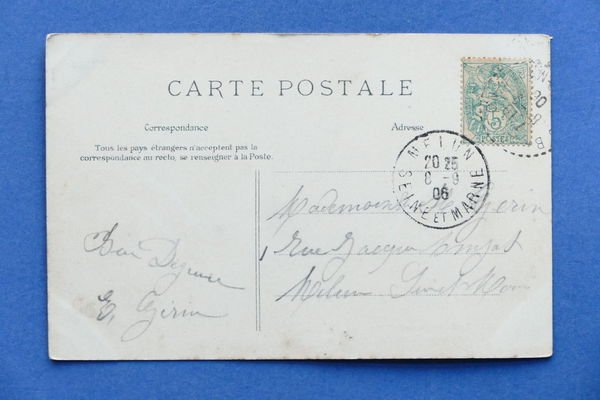 CARTE POSTALE
Correspondance
Adresse
Tous les pays étrangers n'acceptent pas la
correspondance au recto, se renseigner à la Poste.
MELUN
20 25
8 - 9
06
SEINE ET MARNE
5
Mademoiselle Gérin
1 Rue Jacques Amyot
Melun Seine et Marne
Bon Déjeuner
E. Gérin